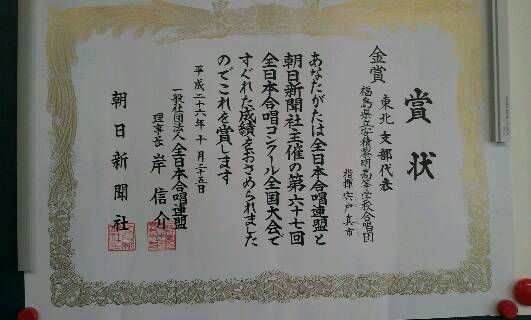 賞状
金賞
東北支部代表
福島県立安積黎明高等学校合唱団
指揮 宍戸真市
あなたがたは全日本合唱連盟と
朝日新聞社主催の第六十七回
全日本合唱コンクール全国大会で
すぐれた成績をおさめられました
のでこれを賞します
平成二十六年十月二十五日
一般社団法人全日本合唱連盟
理事長 岸信介
朝日新聞社